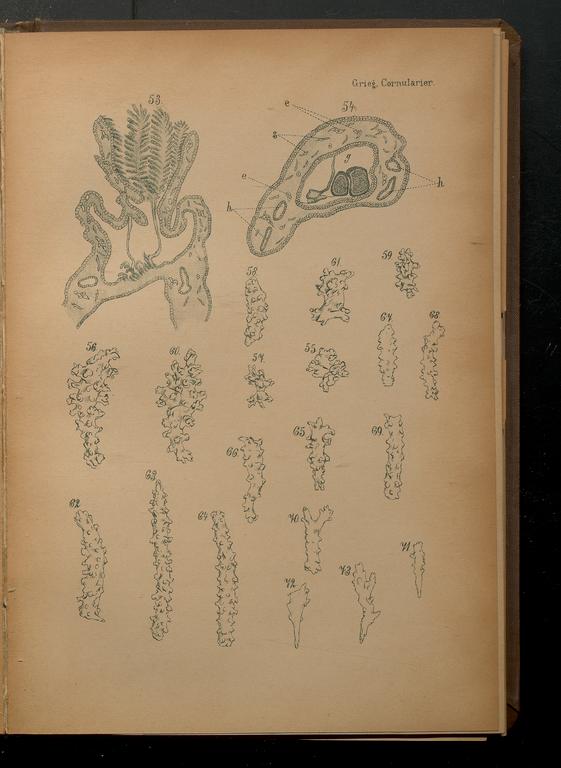 Grieg, Cornularier.
53
54
e
s
g
e
h
h
58
61
59
67
68
56
60
57
55
66
65
69
62
63
64
70
72
73
71